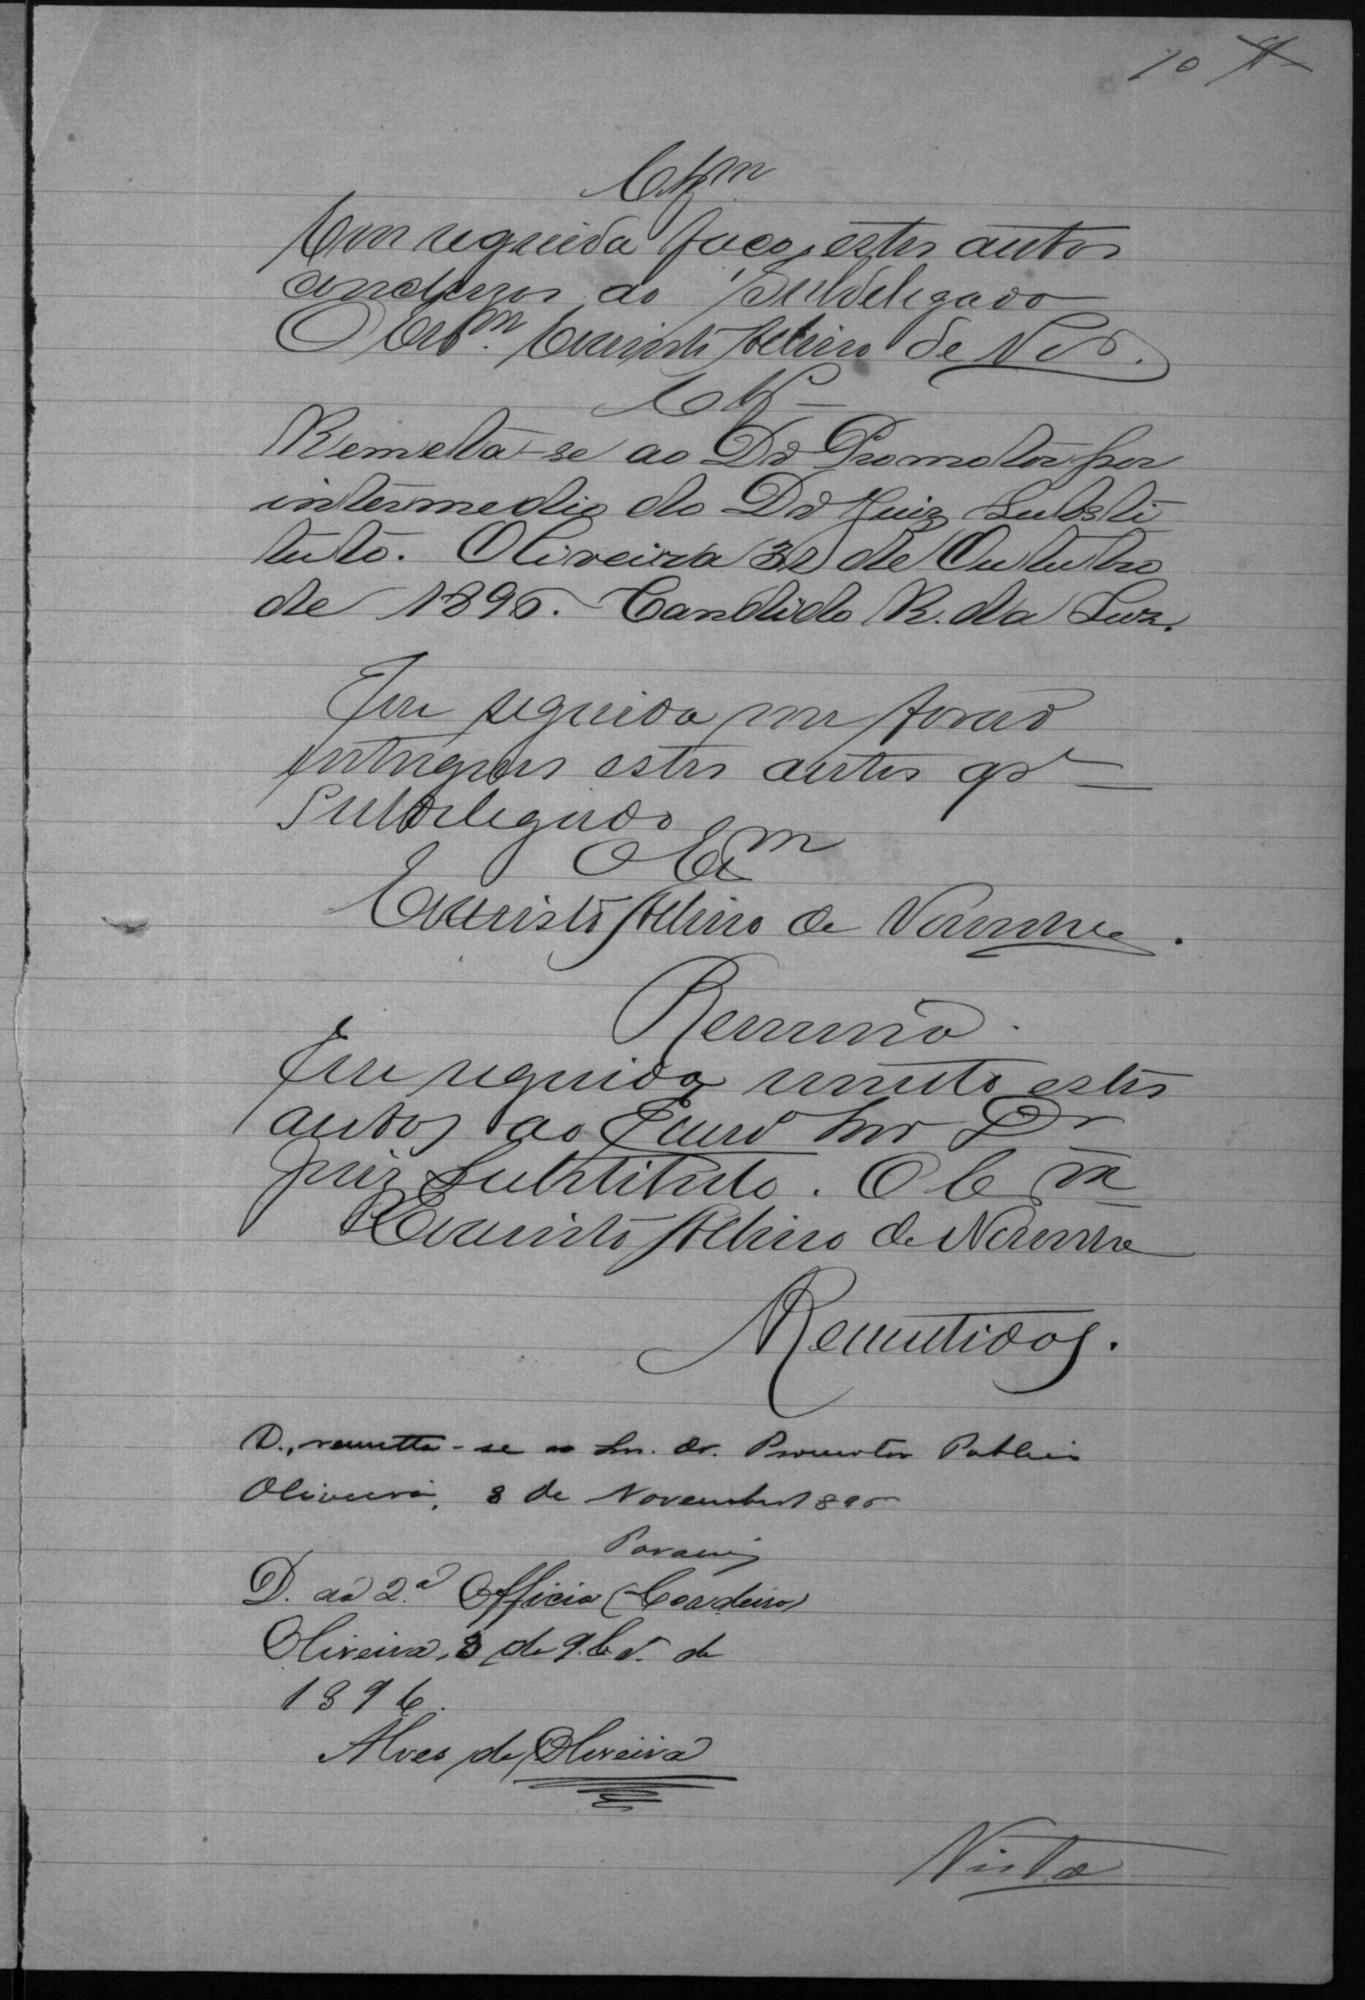 10
Clzm
Em seguida faço estes autos
conclusos ao Subdelegado
O Escm. Evaristo Albino de
Clz
Remetta-se ao Dr Promotor por
intermedio do Dr Juiz Substi
tuto. Oliveira 31 de Outubro
de 1896. Candido R. da Luz.
Em seguida me forão
entregues estes autos
Subdelegado
O Esm
Evaristo Albino de Noronha.
Remessa
Em seguida remeto estes
autos ao Exmo Snr Dr
Juiz Substituto. O Em
Evaristo Albino de Noronha
Remettidos.
D., remetta-se ao Sr. Dr. Promotor Publico
Oliveira, 3 de Novembro 1896
D. ao 2.º Officio (Cordeiro)
Oliveira, 3 de 9.bro. de
1896.
Alves de Oliveira
Vista